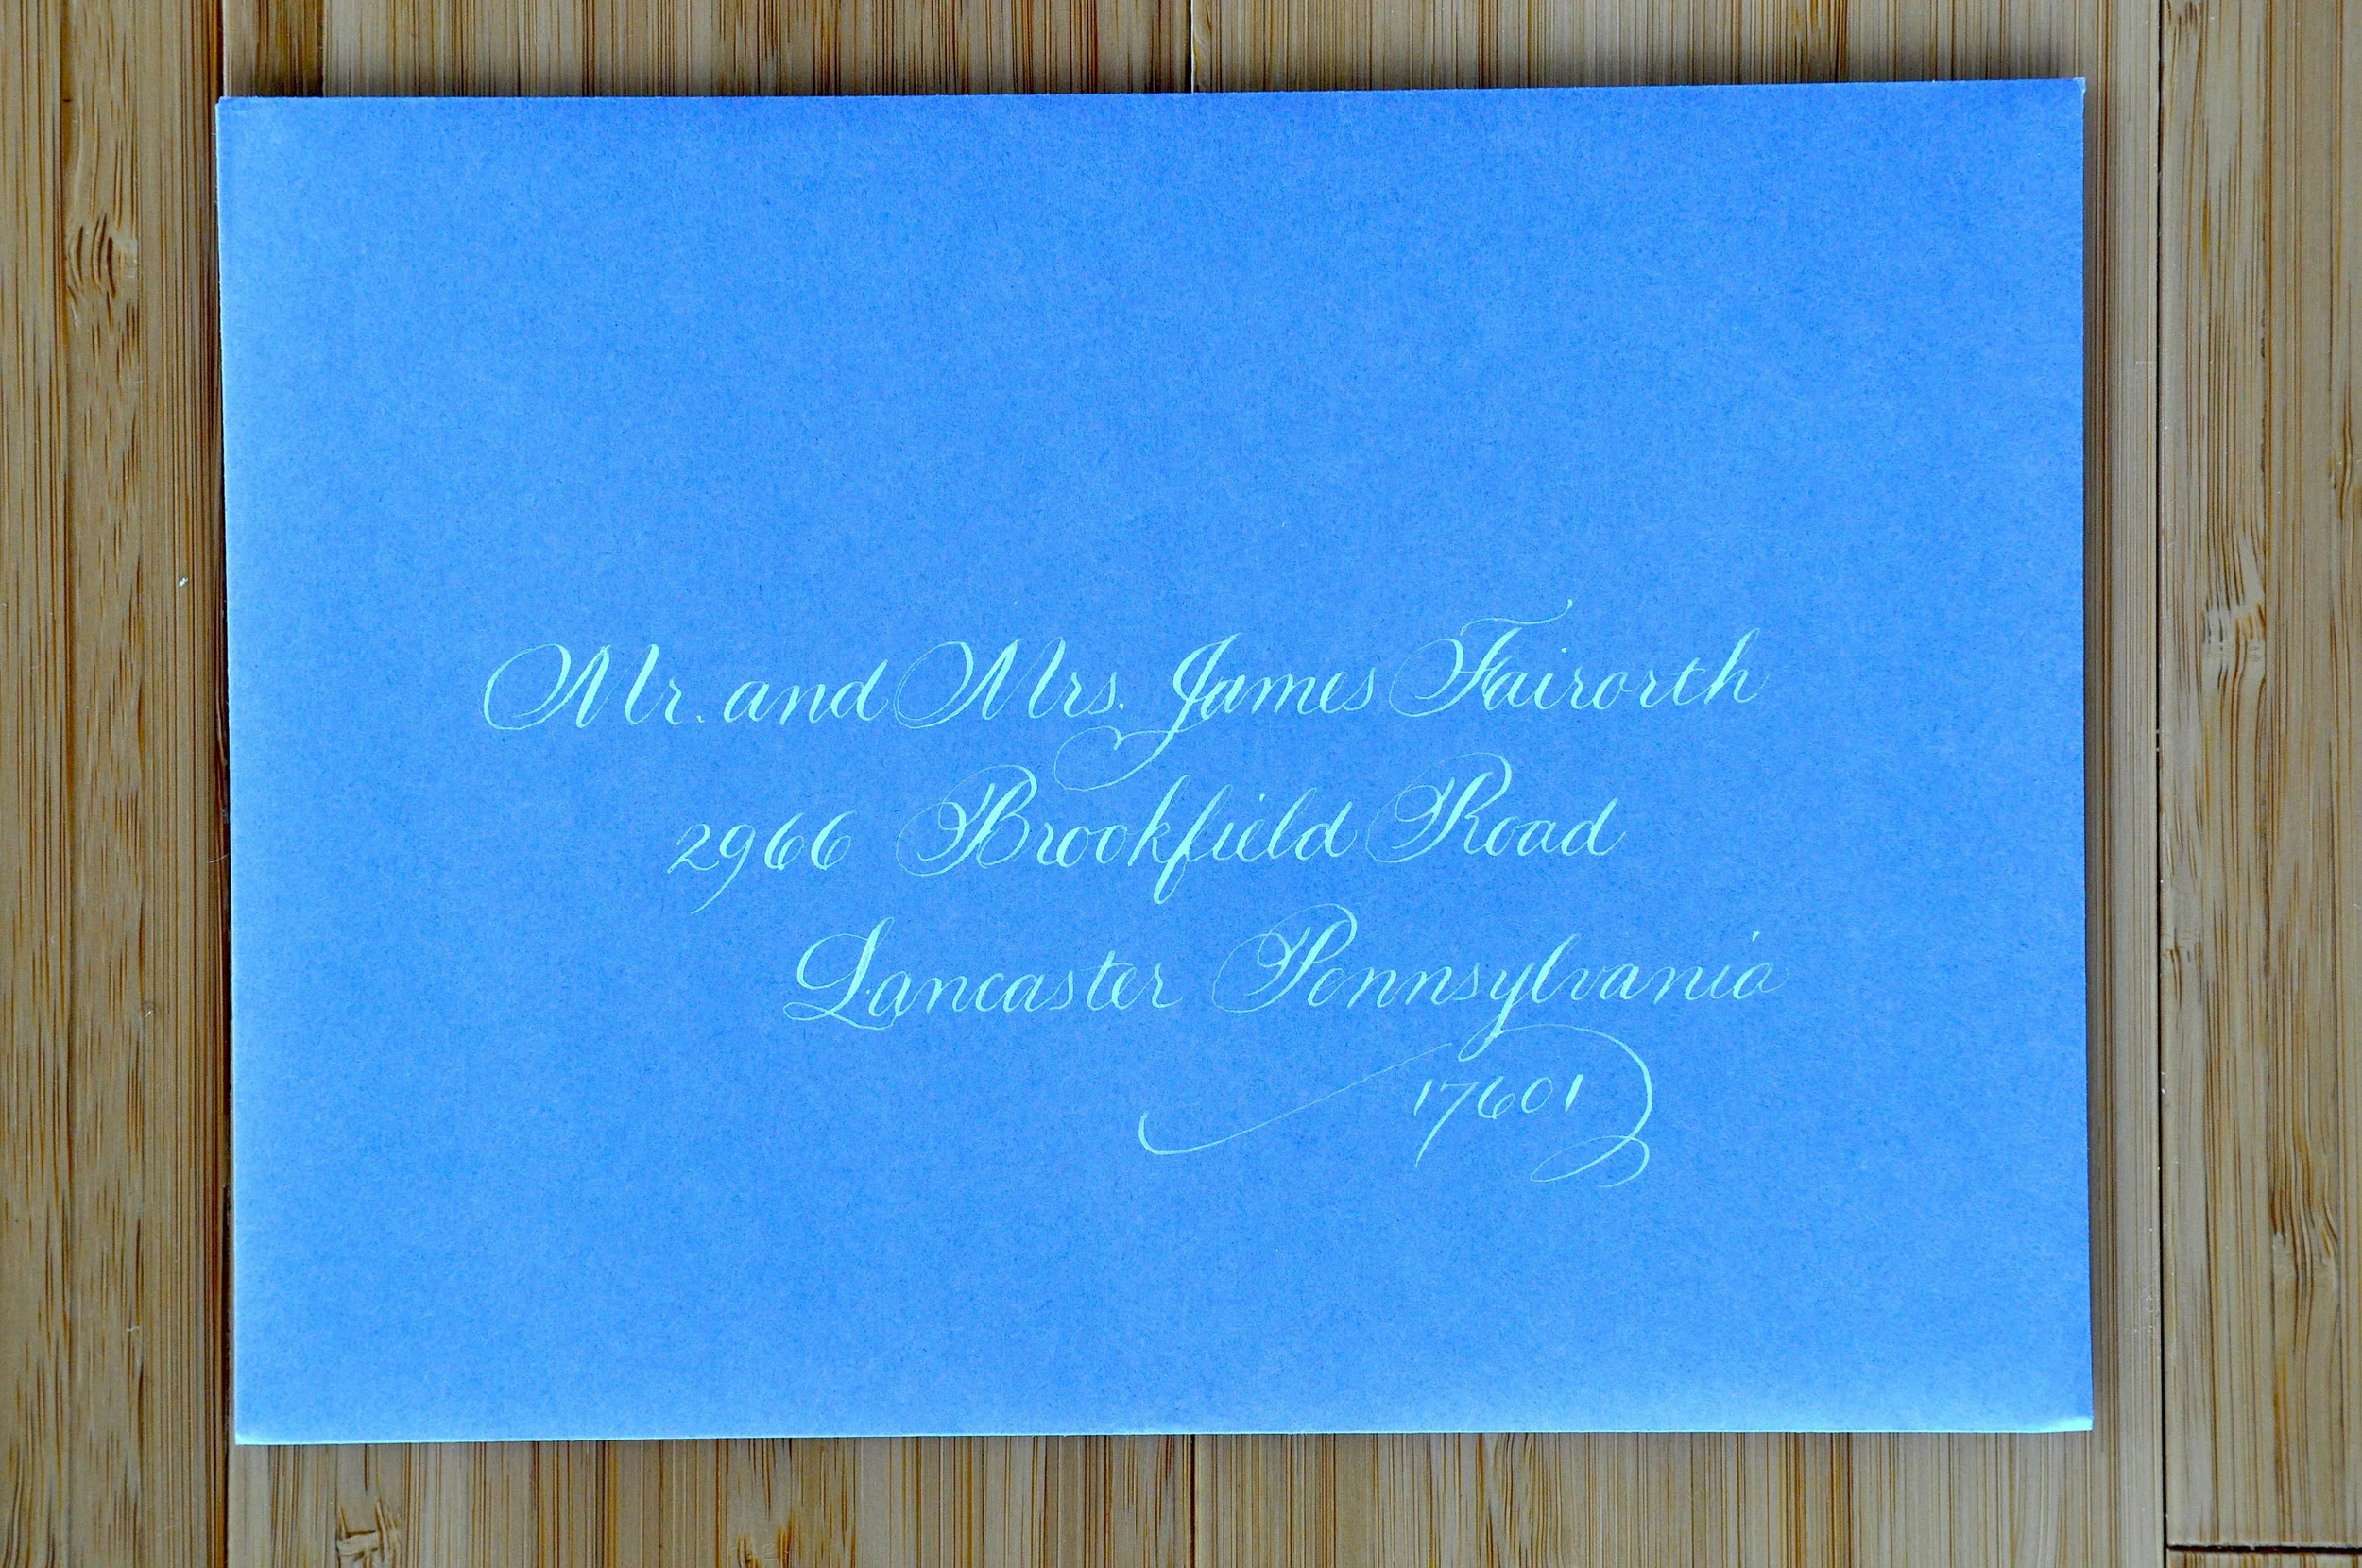 Mr. and Mrs. James Fairorth
2966 Brookfield Road
Lancaster Pennsylvania
17601